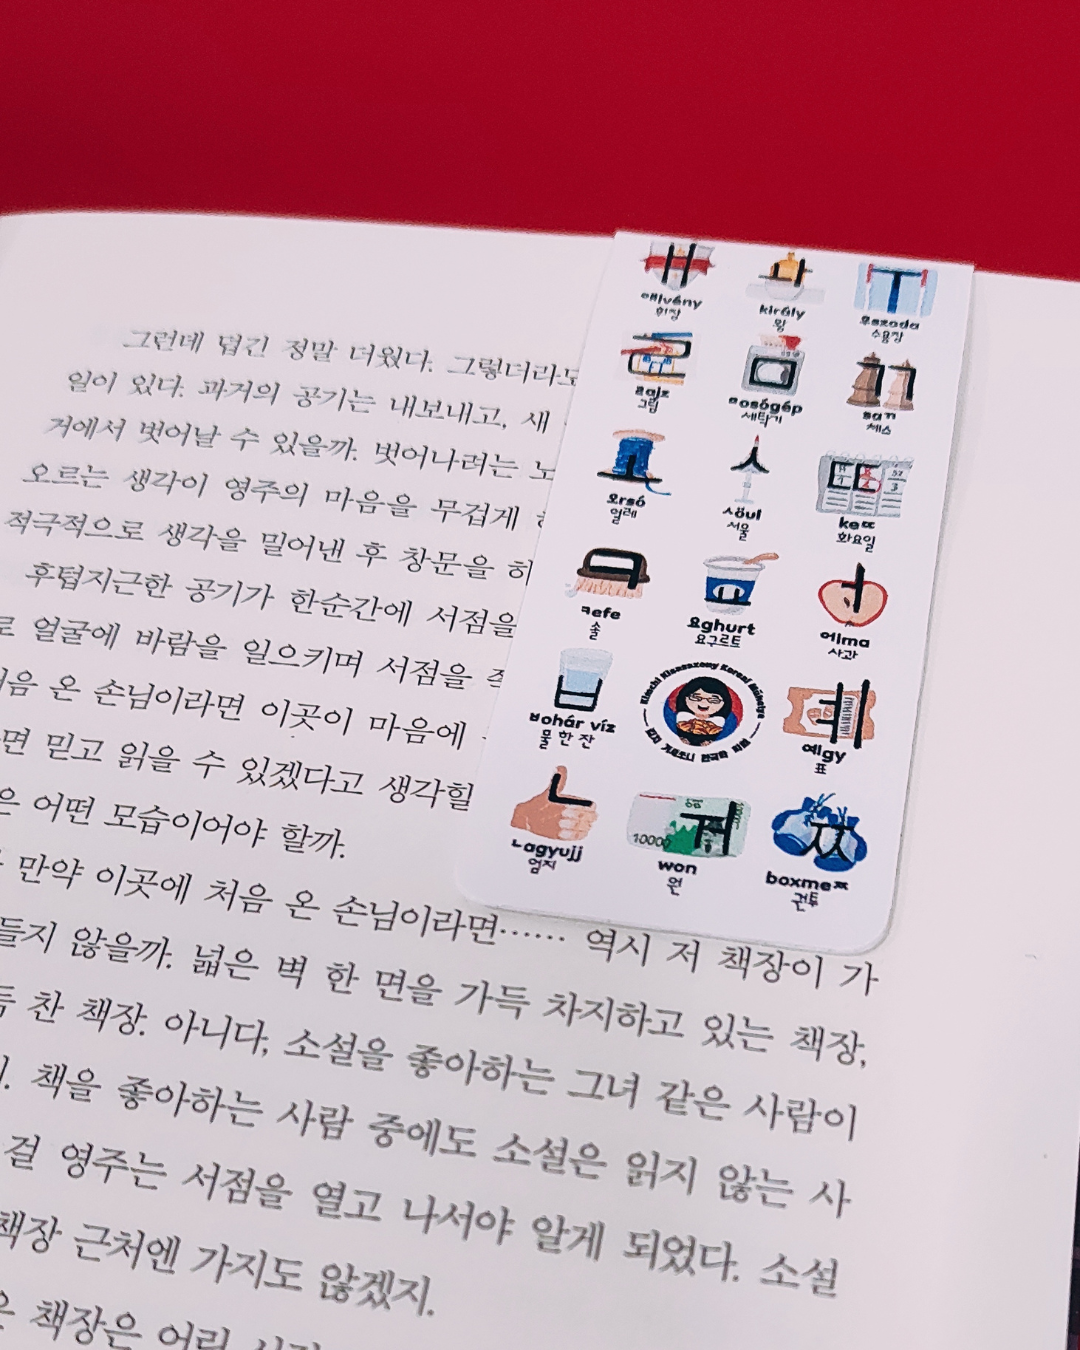 그런데 덥긴 정말 더웠다. 그렇더라도
일이 있다. 과거의 공기는 내보내고, 새
거에서 벗어날 수 있을까. 벗어나려는 노
오르는 생각이 영주의 마음을 무겁게
적극적으로 생각을 밀어낸 후 창문을 히
후텁지근한 공기가 한순간에 서점을
로 얼굴에 바람을 일으키며 서점을
처음 온 손님이라면 이곳이 마음에
면 믿고 읽을 수 있겠다고 생각할
은 어떤 모습이어야 할까.
만약 이곳에 처음 온 손님이라면…… 역시 저 책장이 가
들지 않을까. 넓은 벽 한 면을 가득 차지하고 있는 책장,
득 찬 책장. 아니다, 소설을 좋아하는 그녀 같은 사람이
책을 좋아하는 사람 중에도 소설은 읽지 않는 사
걸 영주는 서점을 열고 나서야 알게 되었다. 소설
책장 근처엔 가지도 않겠지.
책장은 어린
ㅐ
ㅐlvány
휘장
ㅘ
király
왕
ㅜ
ㅜszoda
수영장
ㄹ
ㄹajz
그림
ㅁ
ㅁosógép
세탁기
ㄲ
saㄲ
체스
ㅗ
ㅗrsó
얼레
ㅅ
ㅅöul
서울
ㄸ
keㄸ
화요일
ㅋ
ㅋefe
솔
ㅛ
ㅛghurt
요구르트
ㅓ
ㅓlma
사과
ㅂ
ㅂohár víz
물 한 잔
Kimchi Kisasszony Koreai Műhelye
ㅖ
ㅖlgy
표
ㄴ
ㄴagyujj
엄지
10000
ㅝ
won
원
ㅉ
boxmeㅉ
권투